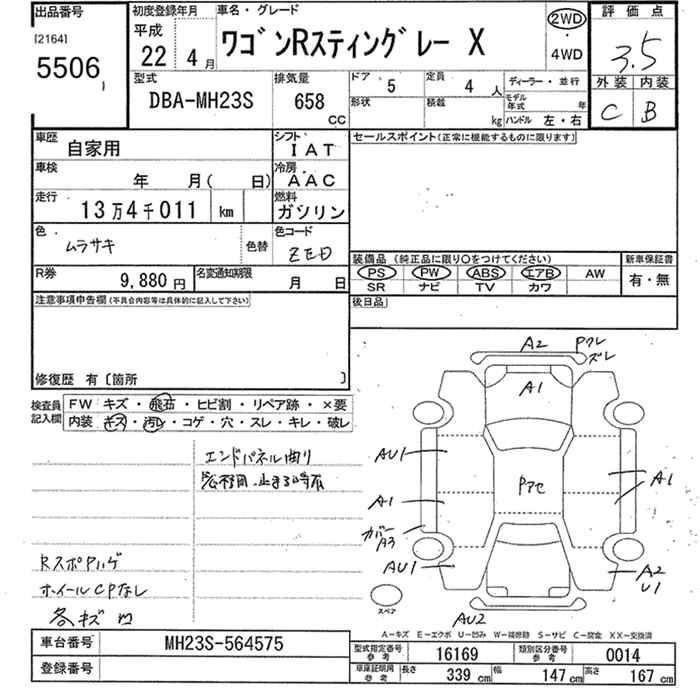 出品番号
[2164]
5506
初度登録年月
平成
22年 4月
車名・グレード
ワゴンRスティングレー X
2WD
・
4WD
評価点
3.5
外装 内装
C B
型式
DBA-MH23S
排気量
658
CC
ドア 5
定員 4人
形状
積載 kg
ディーラー・並行
モデル年式 年
ハンドル 左・右
車歴 自家用
シフト IAT
車検 年 月( 日)
冷房 AAC
走行 13万4千011 km
燃料 ガソリン
色 ムラサキ
色替
色コード ZED
R券 9,880円
名変通知期限 月 日
セールスポイント(正常に機能するものに限ります)
装備品(純正品に限り〇をつけてください)
PS PW ABS エアB AW
SR ナビ TV カワ
新車保証書
有・無
後日品
注意事項申告欄(不具合内容等は具体的に記入して下さい)
修復歴 有〔箇所 〕
検査員記入欄
FW キズ・飛石・ヒビ割・リペア跡・×要
内装 キズ・汚レ・コゲ・穴・スレ・キレ・破レ
エンドパネル曲り
RスポPハゲ
ホイールCPなし
各キズ凹
A2
Pクレ
ズレ
A1
AU1
Pアセ
A1
A1
カバー
A3
AU1
A2
U1
スペア
AU2
A−キズ E−エクボ U−凹み W−補修跡 S−サビ C−腐食 XX−交換済
車台番号 MH23S-564575
登録番号
型式指定番号 参考 16169
類別区分番号 参考 0014
車庫証明用 参考 長さ 339cm 幅 147cm 高さ 167cm